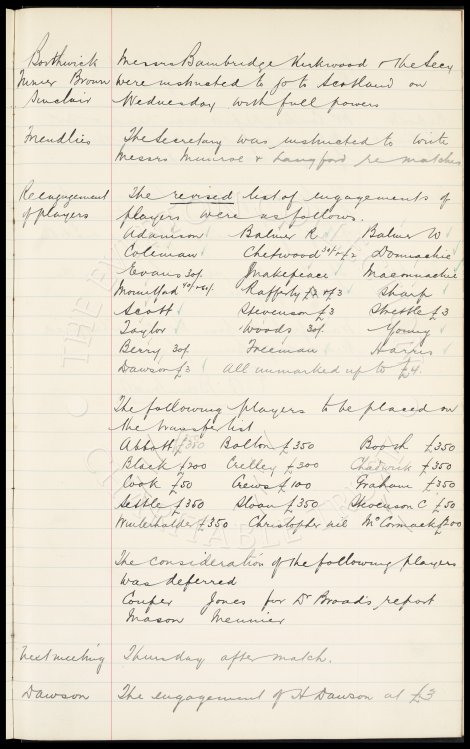 Borthwick Messrs Bambridge Kirkwood & the Secy
Turner Brown were instructed to go to Scotland on
Sinclair Wednesday with full powers
Friendlies The Secretary was instructed to write
Messrs Munroe & Langford re matches
Reengagement The revised list of engagements of
of players players were as follows.
Adamson Balmer R Balmer W
Coleman Chetwood Donnachie
Evans 30/- Makepeace Maconnachie
Mountford Rafferty £3 Sharp
Scott Stevenson £3 Strettle £3
Taylor Woods 30/- Young
Berry 30/- Freeman Harris
Dawson £3 All unmarked up to £4.
The following players to be placed on
the transfer list
Abbott £350 Bolton £350 Booth £350
Black £200 Crelley £300 Chadwick £350
Cook £50 Crews £100 Graham £350
Settle £350 Sloan £350 Stevenson C £50
Winterhalder £350 Christopher nil McCormack £200
The consideration of the following players
was deferred
Couper Jones for Dr Broads report
Mason Meunier
Next meeting Thursday after match.
Dawson The engagement of H Dawson at £3